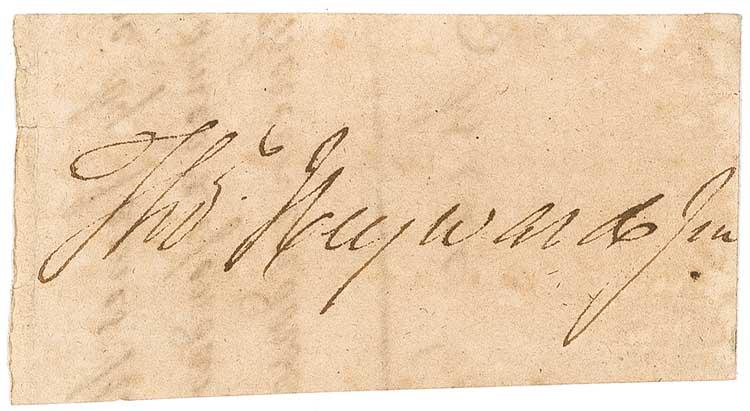 Thos Heyward Jun